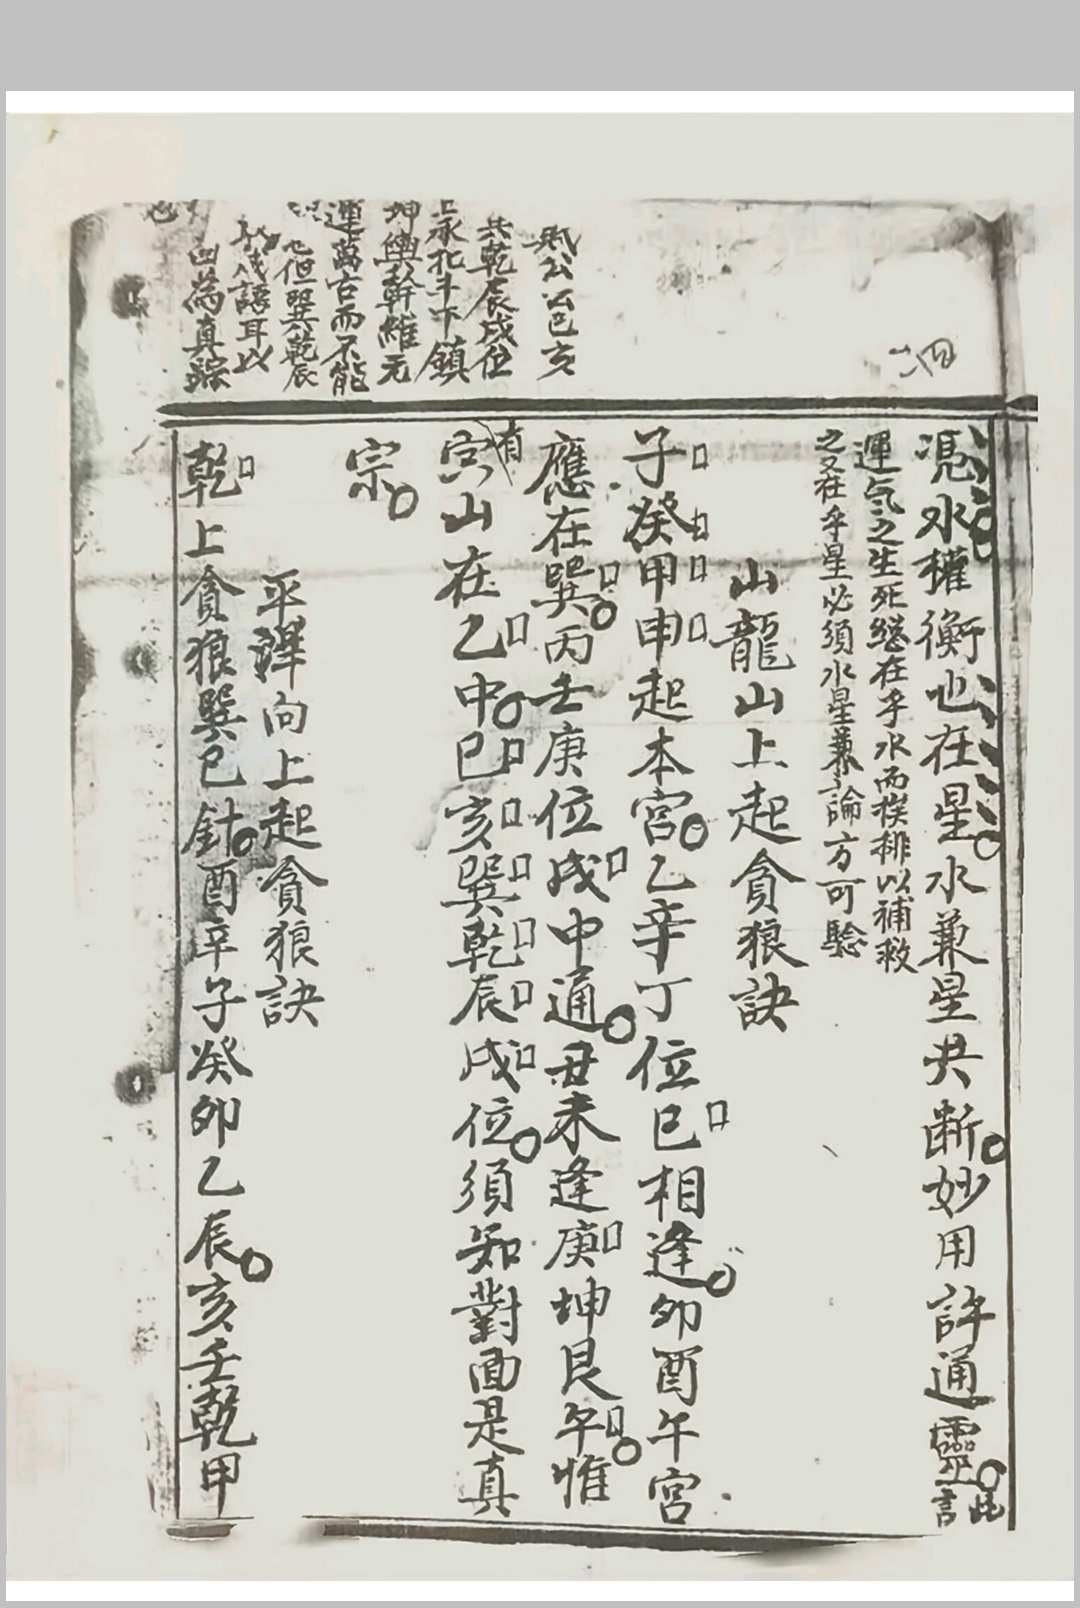 四
凴水權衡也在星水兼星共断妙用許通靈此言
運气之生死継在乎水而挨排以補救
之又在乎星必須水星兼論方可驗
山龍山上起貪狼訣
子癸甲申起本宮乙辛丁位巳相逢卯酉午宮
應在巽丙壬庚位戌中通丑未逢庚坤艮午惟
有寅山在乙中巳亥巽乾辰戌位須知對面是真
宗
平洋向上起貪狼訣
乾上貪狼巽巳針酉辛子癸卯乙辰亥壬乾甲
公以巳亥
共乾辰戌位
上承北斗下鎮
坤輿幹維元
運萬古而不能
也但巽乾辰
戌語耳以
為真踪